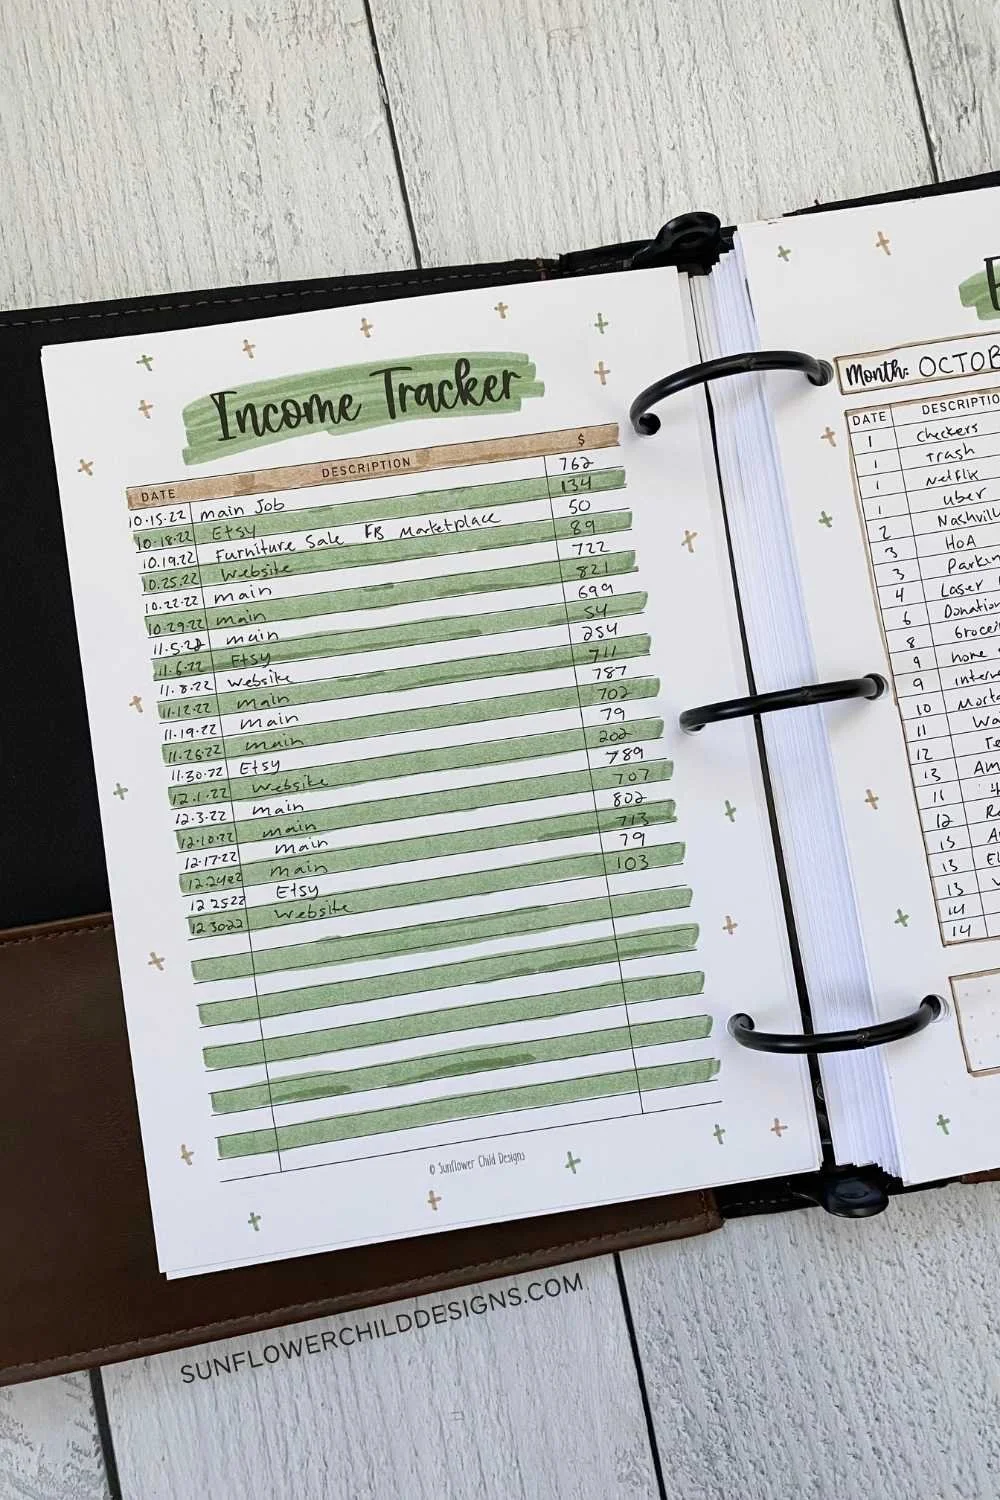 Income Tracker
DATE DESCRIPTION $
10.15.22 main Job 762
10.18.22 Etsy 134
10.19.22 Furniture Sale FB Marketplace 50
10.25.22 Website 89
10.22.22 main 722
10.29.22 main 821
11.5.22 main 699
11.6.22 Etsy 54
11.8.22 website 254
11.12.22 main 711
11.19.22 main 787
11.26.22 main 702
11.30.22 Etsy 79
12.1.22 Website 202
12.3.22 main 789
12.10.22 main 707
12.17.22 main 802
12.24.22 main 713
12 25 22 Etsy 79
12 30 22 Website 103
© Sunflower Child Designs
SUNFLOWERCHILDDESIGNS.COM
Month: OCTOB
DATE DESCRIPTIO
1 checkers
1 Trash
1 Netflix
1 uber
2 Nashvill
3 HOA
3 Parkin
4 Laser
6 Donatio
8 Grocei
9 home
9 intern
10 Morta
11 Wa
12 Te
13 Am
11
12
13
13 El
13
14
14